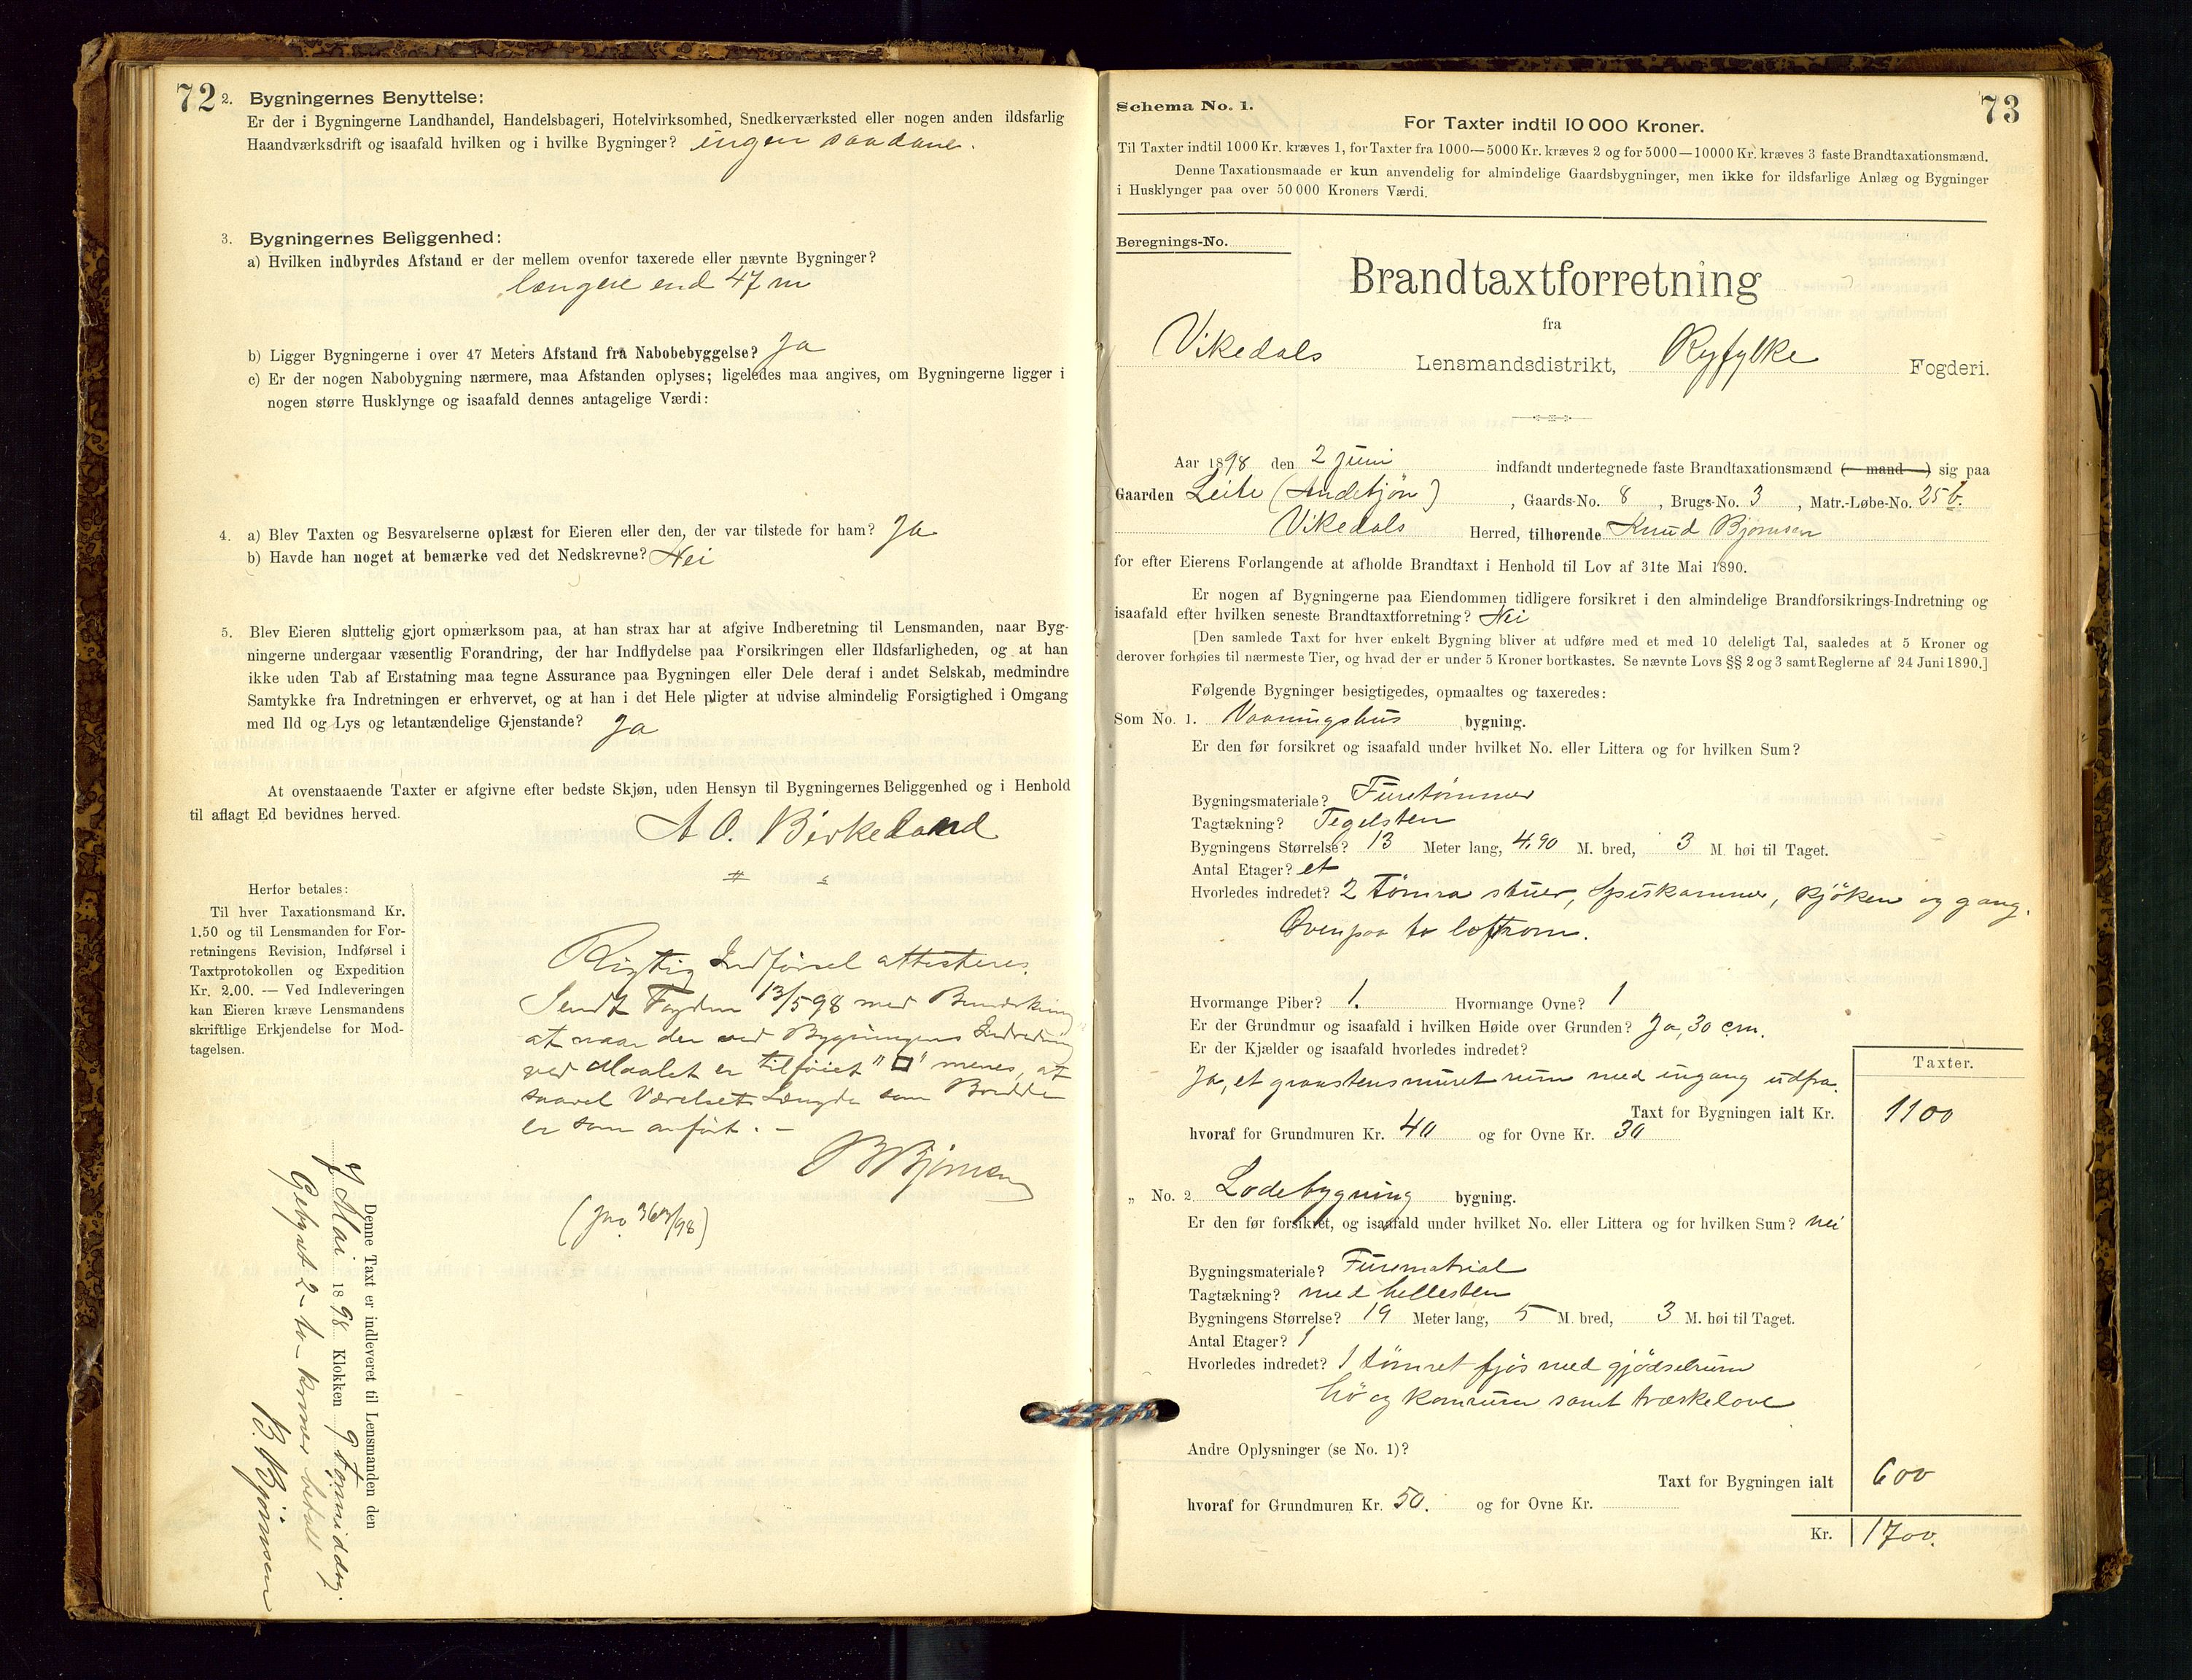 72
2. Bygningernes Benyttelse:
Er der i Bygningerne Landhandel, Handelsbageri, Hotelvirksomhed, Snedkerværksted eller nogen anden ildsfarlig
Haandværksdrift og isaafald hvilken og i hvilke Bygninger? ingen saadane.
3. Bygningernes Beliggenhed:
a) Hvilken indbyrdes Afstand er der mellem ovenfor taxerede eller nævnte Bygninger?
længere end 47 m
b) Ligger Bygningerne i over 47 Meters Afstand fra Nabobebyggelse? Ja
c) Er der nogen Nabobygning nærmere, maa Afstanden oplyses; ligeledes maa angives, om Bygningerne ligger i
nogen større Husklynge og isaafald dennes antagelige Værdi:
4. a) Blev Taxten og Besvarelserne oplæst for Eieren eller den, der var tilstede for ham? Ja
b) Havde han noget at bemærke ved det Nedskrevne? Nei
5. Blev Eieren sluttelig gjort opmærksom paa, at han strax har at afgive Indberetning til Lensmanden, naar Byg-
ningerne undergaar væsentlig Forandring, der har Indflydelse paa Forsikringen eller Ildsfarligheden, og at han
ikke uden Tab af Erstatning maa tegne Assurance paa Bygningen eller Dele deraf i andet Selskab, medmindre
Samtykke fra Indretningen er erhvervet, og at han i det Hele pligter at udvise almindelig Forsigtighed i Omgang
med Ild og Lys og letantændelige Gjenstande? Ja
At ovenstaaende Taxter er afgivne efter bedste Skjøn, uden Hensyn til Bygningernes Beliggenhed og i Henhold
til aflagt Ed bevidnes herved.
A O. Birkeland
Herfor betales:
Til hver Taxationsmand Kr.
1.50 og til Lensmanden for For-
retningens Revision, Indførsel i
Taxtprotokollen og Expedition
Kr. 2.00. — Ved Indleveringen
kan Eieren kræve Lensmandens
skriftlige Erkjendelse for Mod-
tagelsen.
Rigtig Indførsel attesteres.
Sendt Fogden 13/5 98 med Bemerkning
at naar der ved Bygningens Indredning
ved Maalet er tilføiet "□" menes, at
saavel Værelsets Længde som Bredde
er som anført. -
B Bjørnsen
(Jno /98)
Denne Taxt er indleveret til Lensmanden den
7 Mai 1898 Klokken 9 Formiddag.
Gebyret 2 - to - kroner betalt
B. Bjørnsen
73
Schema No. 1.
For Taxter indtil 10 000 Kroner.
Til Taxter indtil 1000 Kr. kræves 1, for Taxter fra 1000—5000 Kr. kræves 2 og for 5000—10000 Kr. kræves 3 faste Brandtaxationsmænd.
Denne Taxationsmaade er kun anvendelig for almindelige Gaardsbygninger, men ikke for ildsfarlige Anlæg og Bygninger
i Husklynger paa over 50 000 Kroners Værdi.
Beregnings-No.
Brandtaxtforretning
fra
Vikedals Lensmandsdistrikt, Ryfylke Fogderi.
Aar 1898 den 2 Juni indfandt undertegnede faste Brandtaxationsmænd (— mand —) sig paa
Gaarden Leite (Andetjøn), Gaards-No. 8, Brugs-No. 3, Matr.-Løbe-No. 25 b.
Vikedals Herred, tilhørende Knud Bjørnsen
for efter Eierens Forlangende at afholde Brandtaxt i Henhold til Lov af 31te Mai 1890.
Er nogen af Bygningerne paa Eiendommen tidligere forsikret i den almindelige Brandforsikrings-Indretning og
isaafald efter hvilken seneste Brandtaxtforretning? Nei
[Den samlede Taxt for hver enkelt Bygning bliver at udføre med et med 10 deleligt Tal, saaledes at 5 Kroner og
derover forhøies til nærmeste Tier, og hvad der er under 5 Kroner bortkastes. Se nævnte Lovs §§ 2 og 3 samt Reglerne af 24 Juni 1890.]
Følgende Bygninger besigtigedes, opmaaltes og taxeredes:
Som No. 1. Vaaningshus bygning.
Er den før forsikret og isaafald under hvilket No. eller Littera og for hvilken Sum?
Bygningsmateriale? Furetømmer
Tagtækning? Tegelsten
Bygningens Størrelse? 13 Meter lang, 4,90 M. bred, 3 M. høi til Taget.
Antal Etager? et
Hvorledes indredet? 2 tömra stuer, Spiskammer, kjöken og gang.
Ovenpaa to loftrom.
Hvormange Piber? 1. Hvormange Ovne? 1
Er der Grundmur og isaafald i hvilken Høide over Grunden? Ja, 30 cm.
Er der Kjælder og isaafald hvorledes indredet?
Ja, et graastensmuret rum med ingang udfra.
Taxter.
Taxt for Bygningen ialt Kr. 1100
hvoraf for Grundmuren Kr. 40 og for Ovne Kr. 30
„ No. 2. Lodebygning bygning.
Er den før forsikret, og isaafald under hvilket No. eller Littera og for hvilken Sum? nei
Bygningsmateriale? Furematrial
Tagtækning? med hellesten
Bygningens Størrelse? 19 Meter lang, 5 M. bred, 3 M. høi til Taget.
Antal Etager? 1
Hvorledes indredet? 1 tömret fjös med gjödselrum
hö og kornrum samt træskelove
Andre Oplysninger (se No. 1)?
Taxt for Bygningen ialt 600
hvoraf for Grundmuren Kr. 50. og for Ovne Kr.
Kr. 1700.